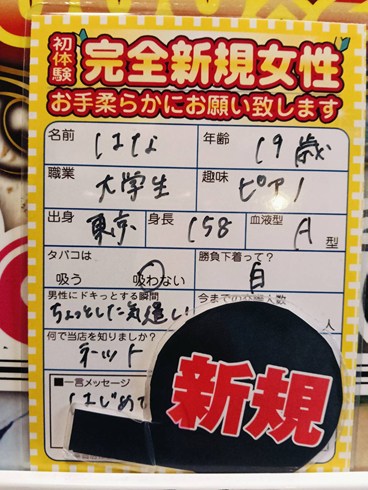 初体験 完全新規女性
お手柔らかにお願い致します
名前 はな 年齢 19歳
職業 大学生 趣味 ピアノ
出身 東京 身長 158 血液型 A型
タバコは 吸う 吸わない 勝負下着って? 白
男性にドキっとする瞬間 ちょっとした気遣い
人
何で当店を知りましたか? ネット
■一言メッセージ
はじめて
新規